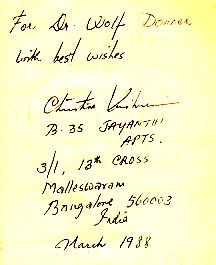 For Dr. Wolf Donner
with best wishes
B-35 JAYANTHI
APTS.
3/1, 13th CROSS
Malleswaram
Bangalore 560003
India
March 1988